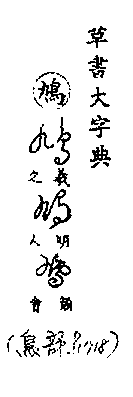 草書大字典
鳩
鳩 羲之
鳩 明人
鳩
(鳥部.P.1718)